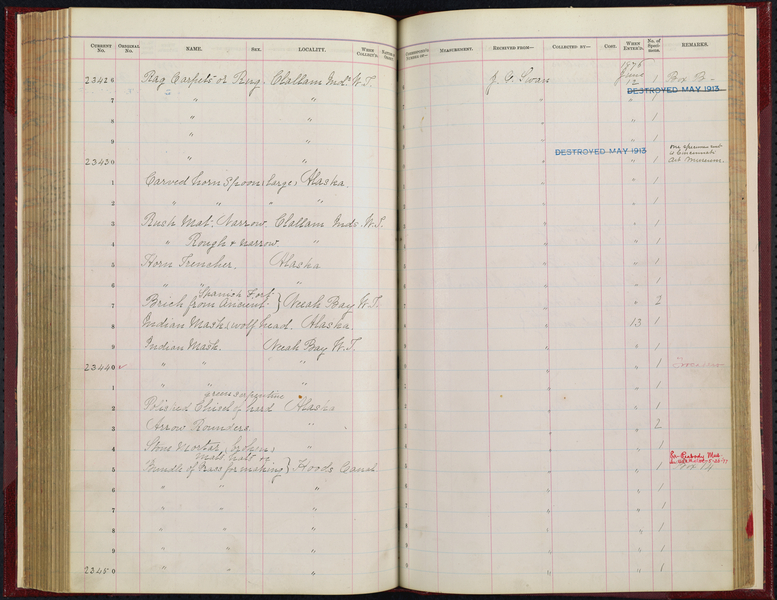 CURRENT No. ORIGINAL No. NAME. SEX. LOCALITY. WHEN COLLECT'D. MEASUREMENT. RECEIVED FROM— COLLECTED BY— COST. WHEN ENTER'D. No. of Specimens. REMARKS.
23426 Rag Carpet or Rug. Clallam Inds W.T. J. G. Swan 1876 June 12 1 Box B—
DESTROYED MAY 1913
7 " " " " 1
8 " " " " 1
9 " " " " 1
DESTROYED MAY 1913
23430 " " " " 1 one specimen sent to Cincinnati Art Museum.
1 Carved horn Spoon (large) Alaska. " " 1
2 " " " " " " 1
3 Rush Mat. Narrow. Clallam Inds. W.T. " " 1
4 " Rough & narrow. " " " 1
5 Horn Trencher. Alaska " " 1
6 " " " " " 1
7 Brick from Ancient Spanish Fort } Neah Bay W.T. " " 2
8 Indian Mask (wolf head. Alaska. " 13 1
9 Indian Mask. Neah Bay W.T. " " 1
23440 " " " " " 1
1 " " " " " 1
2 Polished Chisel of hard green serpentine Alaska " " 1
3 Arrow Rounders. " " " 2
4 Stone Mortar, broken " " " 1
5 Bundle of Grass for making mats, hats &c } Hoods Canal " " 1
6 " " " " " 1
7 " " " " " 1
8 " " " " " 1
9 " " " " " 1
23450 " " " " " 1